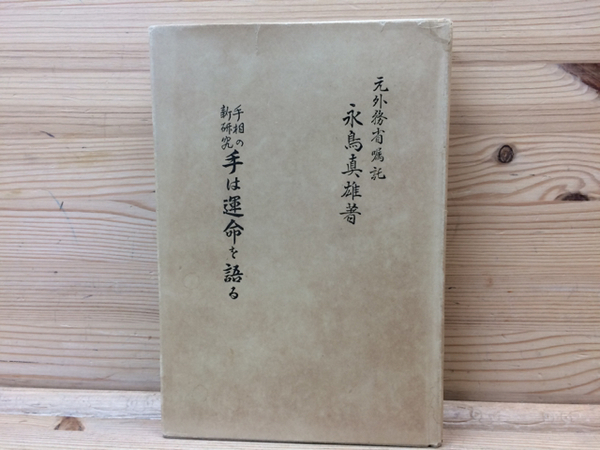 元外務省嘱託
永鳥真雄著
手相の
新研究
手は運命を語る